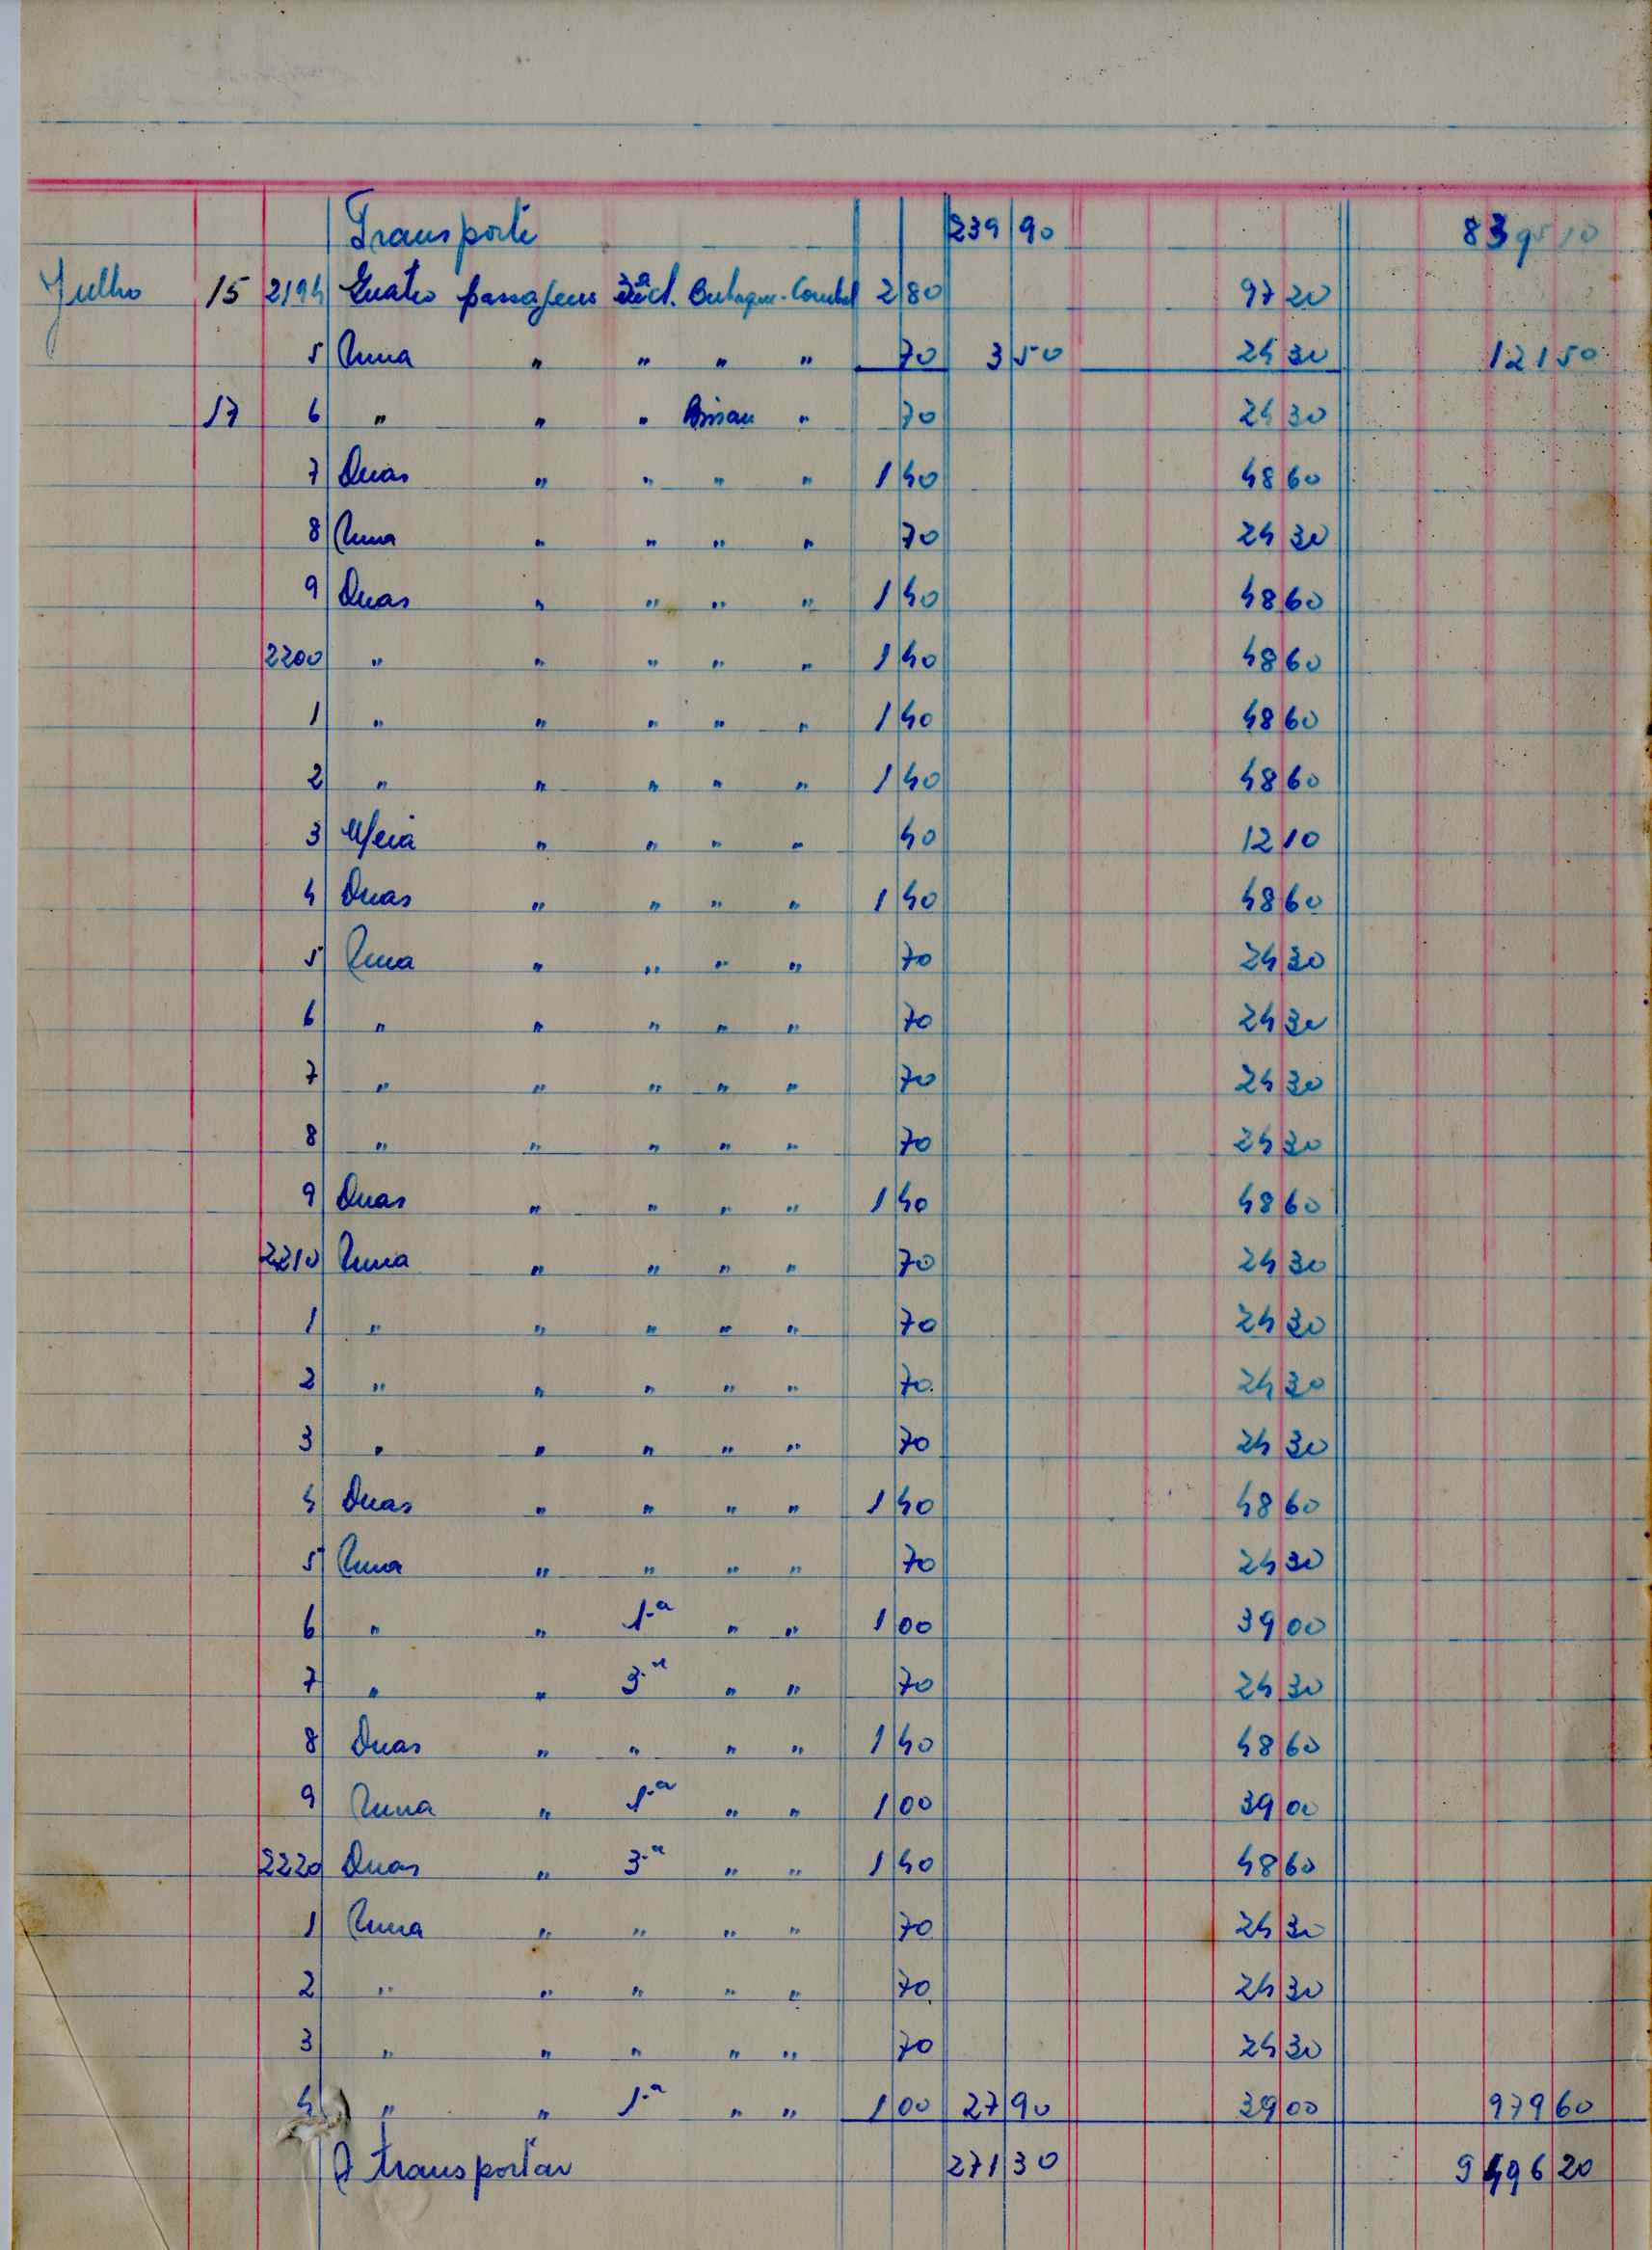 Transporte 239 90 839510
Julho 15 2194 Quatro passagens 3ª cl. 2 80 97 20
5 Uma " " " " 70 3 50 24 30 121 50
17 6 " " " Bissau " 70 24 30
7 Duas " " " " 1 40 48 60
8 Uma " " " " 70 24 30
9 Duas " " " " 1 40 48 60
2200 " " " " " 1 40 48 60
1 " " " " " 1 40 48 60
2 " " " " " 1 40 48 60
3 Meia " " " " 40 12 10
4 Duas " " " " 1 40 48 60
5 Uma " " " " 70 24 30
6 " " " " " 70 24 30
7 " " " " " 70 24 30
8 " " " " " 70 24 30
9 Duas " " " " 1 40 48 60
2210 Uma " " " " 70 24 30
1 " " " " " 70 24 30
2 " " " " " 70 24 30
3 " " " " " 70 24 30
4 Duas " " " " 1 40 48 60
5 Uma " " " " 70 24 30
6 " " 1.ª " " 1 00 39 00
7 " " 3.ª " " 70 24 30
8 Duas " " " " 1 40 48 60
9 Uma " 1.ª " " 1 00 39 00
2220 Duas " 3.ª " " 1 40 48 60
1 Uma " " " " 70 24 30
2 " " " " " 70 24 30
3 " " " " " 70 24 30
4 " " 1.ª " " 1 00 27 90 39 00 979 60
A transportar 271 30 9496 20